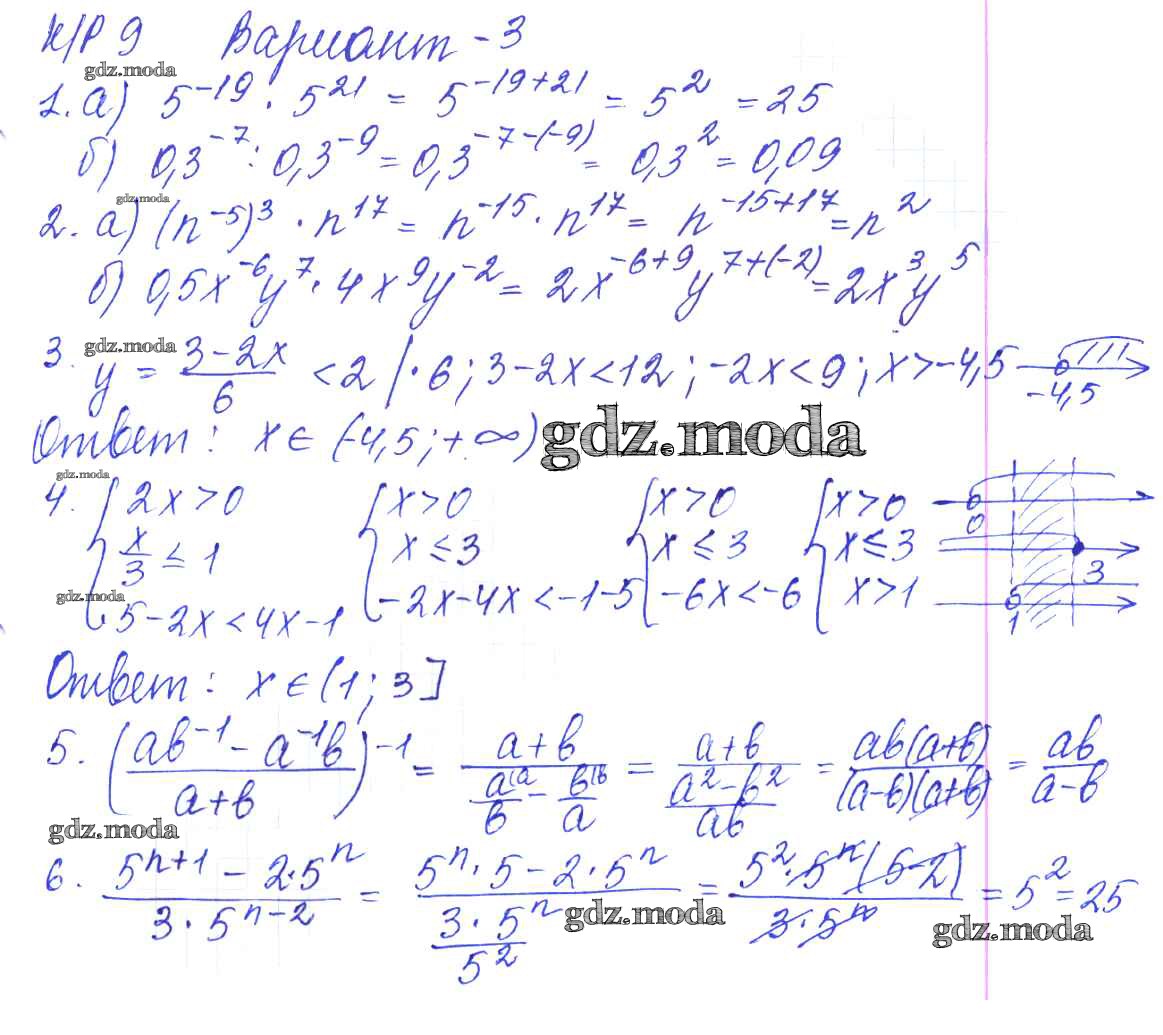 К/Р 9 Вариант - 3
gdz.moda
1. а) 5^-19 · 5^21 = 5^-19+21 = 5^2 = 25
б) 0,3^-7 : 0,3^-9 = 0,3^-7-(-9) = 0,3^2 = 0,09
gdz.moda
2. а) (n^-5)^3 · n^17 = n^-15 · n^17 = n^-15+17 = n^2
б) 0,5x^-6y^7 · 4x^9y^-2 = 2x^-6+9 y^7+(-2) = 2x^3y^5
3. gdz.moda
y = (3-2x)/6 < 2 | · 6 ; 3-2x<12 ; -2x<9 ; x>-4,5 -4,5
Ответ : x ∈ (-4,5 ; +∞) gdz.moda
gdz.moda
4. { 2x>0 { x>0 { x>0 { x>0 0
x/3 ≤ 1 x ≤ 3 x ≤ 3 x ≤ 3 3
gdz.moda
5-2x<4x-1 -2x-4x<-1-5 -6x<-6 x>1 1
Ответ : x ∈ (1 ; 3]
5. ((ab^-1 - a^-1b)/(a+b))^-1 = (a+b)/(a^(a/b - b^(b/a) = (a+b)/((a^2-b^2)/ab) = ab(a+b)/((a-b)(a+b)) = ab/(a-b)
gdz.moda
6. (5^n+1 - 2·5^n)/(3·5^n-2) = (5^n·5 - 2·5^n)/((3·5^n)/5^2) = (5^2·5^n(5-2))/(3·5^n) = 5^2 = 25
gdz.moda
gdz.moda